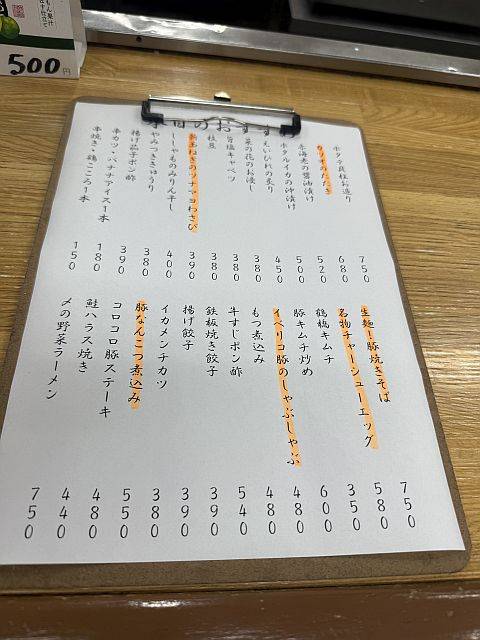 500円
日のおすすめ
ホタテ貝柱お造り 750
カツオのたたき 680
赤海老の醤油漬け 520
ホタルイカの沖漬け 500
えいひれの炙り 450
菜の花のお浸し 380
旨塩キャベツ 380
枝豆 380
新玉ねぎのツナマヨわさび 390
ししゃものみりん干し 400
やみつききゅうり 380
揚げ茄子ポン酢 390
串カツ・バナナアイス1本 180
串焼き・鶏こころ1本 150
生麺!豚焼きそば 750
名物チャーシューエッグ 580
鶴橋キムチ 350
豚キムチ炒め 600
イベリコ豚のしゃぶしゃぶ 480
もつ煮込み 480
牛すじポン酢 540
鉄板焼き餃子 390
揚げ餃子 390
イカメンチカツ 380
豚なんこつ煮込み 550
コロコロ豚ステーキ 480
鮭ハラス焼き 440
〆の野菜ラーメン 750